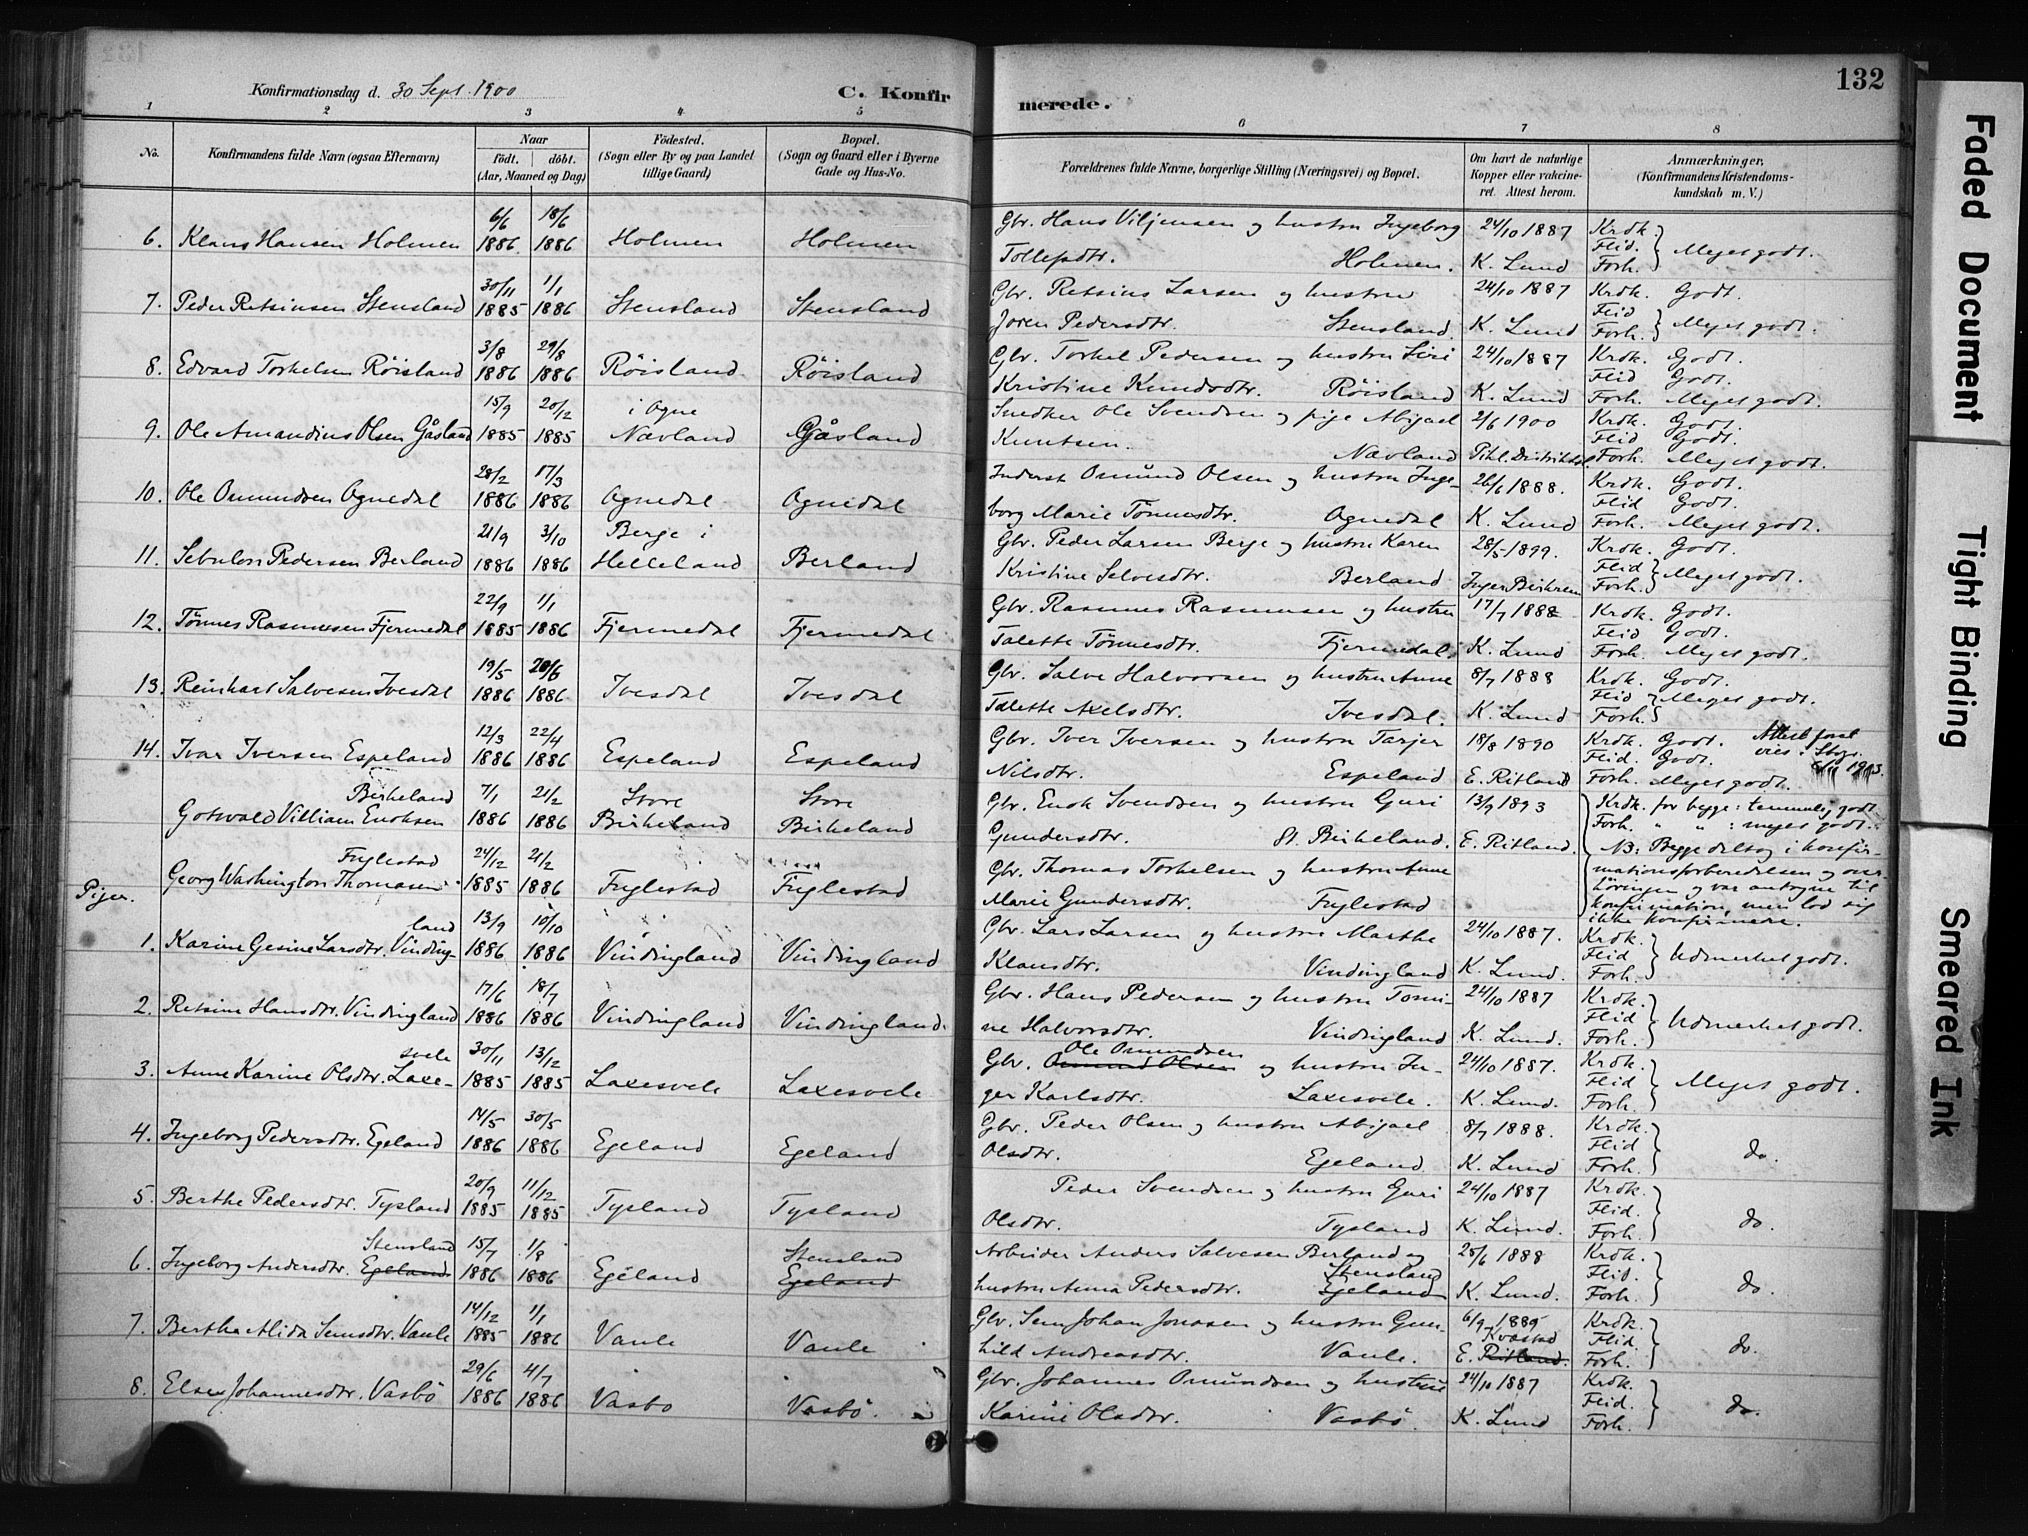 132
Konfirmationsdag d. 30 Sept. 1900
C. Konfirmerede.
1 2 3 4 5 6 7 8
No.
Konfirmandens fulde Navn (ogsaa Efternavn)
Naar
födt. döbt.
(Aar, Maaned og Dag)
Födested.
(Sogn eller By og paa Landet
tillige Gaard)
Bopæl.
(Sogn og Gaard eller i Byerne
Gade og Hus-No.
Forældrenes fulde Navne, borgerlige Stilling (Næringsvei) og Bopæl.
Om havt de naturlige
Kopper eller vakcine-
ret. Attest herom.
Anmærkninger.
(Konfirmandens Kristendoms-
kundskab m. V.)
6/6 18/6 Gbr. Hans Viljensen og hustru Ingeborg 24/10 1887 Krdk.
6. Klaus Hansen Holmen 1886 1886 Holmen Holmen Flid. Meget godt.
Tollefsdtr. Holmen. K. Lund Forh.
30/11 1/1 Gbr. Retsius Larsen og hustru 24/10 1887 Krdk. Godt.
7. Peder Retsiusen Stensland 1885 1886 Stensland Stensland Flid
Joren Pedersdtr. Stensland. K. Lund Forh. Meget godt.
3/8 29/8 Gbr. Torkel Pedersen og hustru Siri 24/10 1887 Krdk. Godt.
8. Edvard Torkelsen Röisland 1886 1886 Röisland Röisland Flid Godt.
Kristine Knudsdtr. Röisland K. Lund Forh. Meget godt.
15/9 20/12 i Ogne Snedker Ole Svendsen og pige Abigael 2/6 1900 Krdk. Godt.
9. Ole Amandius Olsen Gåsland 1885 1885 Nævland Gåsland Flid Godt.
Knutsen. Nævland Pihl. Distriktsl. Forh. Meget godt.
28/2 17/3 Inderst Omund Olsen og hustru Inge- 26/6 1888. Krdk. Godt.
10. Ole Omundsen Ognedal 1886 1886 Ognedal Ognedal Flid Godt.
borg Marie Tönnesdtr. Ognedal K. Lund Forh. Meget godt.
21/9 3/10 Berge i Gbr. Peder Larsen Berge og hustru Karen 28/5 1899. Krdk. Godt.
11. Sebulon Pedersen Berland 1886 1886 Helleland Berland Flid
Kristine Selvesdtr. Berland Inger Birkrem Forh. Meget godt.
22/9 1/1 Gbr. Rasmus Rasmussen og hustru 17/7 1888 Krdk. Godt.
12. Tönnes Rasmussen Fjermedal 1885 1886 Fjermedal Fjermedal Flid Godt.
Talette Tönnesdtr. Fjermedal K. Lund Forh. Meget godt.
19/5 20/6 Gbr. Salve Halvorsen og hustru Anne 8/7 1888 Krdk. Godt.
13. Reinhart Salvesen Ivesdal 1886 1886 Ivesdal Ivesdal Flid Meget godt.
Talette Axelsdtr. Ivesdal. K. Lund Forh.
12/3 22/4 Gbr. Iver Iversen og hustru Tarjer 18/8 1890 Krdk. Godt. Attest
14. Ivar Iversen Espeland 1886 1886 Espeland Espeland Flid. Godt.
Nilsdtr. Espeland E. Ritland Forh. Meget godt. 1903.
Birkeland 7/1 21/2 Store Store Gbr. Enok Svendsen og hustru Guri 13/9 1893 Krdk. for begge: temmelig godt
Gotwald Villiam Enoksen 1886 1886 Birkeland Birkeland Forh. " " : meget godt.
Gundersdtr. St. Birkeland. E. Ritland. NB: Begge deltog i konfir-
Fuglestad 24/12 21/2 Gbr. Thomas Torkelsen og hustru Anne mationsforberedelsen og over-
Georg Washington Thomasen 1885 1886 Fuglestad Fuglestad höringen og var antagne til
Marie Gundersdtr. Fuglestad konfirmation, men lod sig
ikke konfirmere.
Piger.
land 13/9 10/10 Gbr. Lars Larsen og hustru Marthe 24/10 1887. Krdk.
1. Karine Gesine Larsdtr. Vinding- 1886 1886 Vindingland Vindingland Flid Udmerket godt.
Klausdtr. Vindingland K. Lund. Forh.
17/6 18/7 Gbr. Hans Pedersen og hustru Tomi- 24/10 1887 Krdk.
2. Retsine Hansdtr. Vindingland 1886 1886 Vindingland Vindingland. Flid Udmerket godt.
ne Halvorsdtr. Vindingland K. Lund. Forh.
svele 30/11 13/12 Ole Omundsen
3. Anne Karine Olsdtr. Laxe- 1885 1885 Laxesvele Laxesvele Gbr. Omund Olsen og hustru In- 24/10 1887. Krdk. Flid Meget godt.
ger Karlsdtr. Laxesvele. K. Lund. Forh.
14/5 30/5 Gbr. Peder Olsen og hustru Abigael 8/7 1888. Krdk.
4. Ingeborg Pedersdtr. Egeland 1886 1886 Egeland Egeland Flid do.
Olsdtr. Egeland K. Lund Forh.
20/9 11/12 Peder Svendsen og hustru Guri 24/10 1887 Krdk.
5. Berthe Pedersdtr. Tysland 1885 1885 Tysland Tysland Flid. do.
Olsdtr. Tysland K. Lund. Forh.
Stensland 15/7 1/8 Stensland Arbeider Anders Salvesen Berland og 28/6 1888 Krdk.
6. Ingeborg Andersdtr. Egeland 1886 1886 Egeland Egeland Stensland Flid. do.
hustru Anna Pedersdtr. Egeland K. Lund. Forh.
14/12 1/1 Gbr. Sem Johan Jonasen og hustru Gun- 6/9 1885 Krdk.
7. Bertha Alida Semsdtr. Vaule 1885 1886 Vaule Vaule Kvæstad Flid. do.
hild Andreasdtr. Vaule. E. Ritland. Forh.
29/6 4/7 Gbr. Johannes Omundsen og hustru 24/10 1887 Krdk.
8. Else Johannesdtr. Vasbö 1886 1886 Vasbo Vasbö. Flid. do.
Karine Olsdtr. Vasbö. K. Lund Forh.
Faded Document
Tight Binding
Smeared Ink